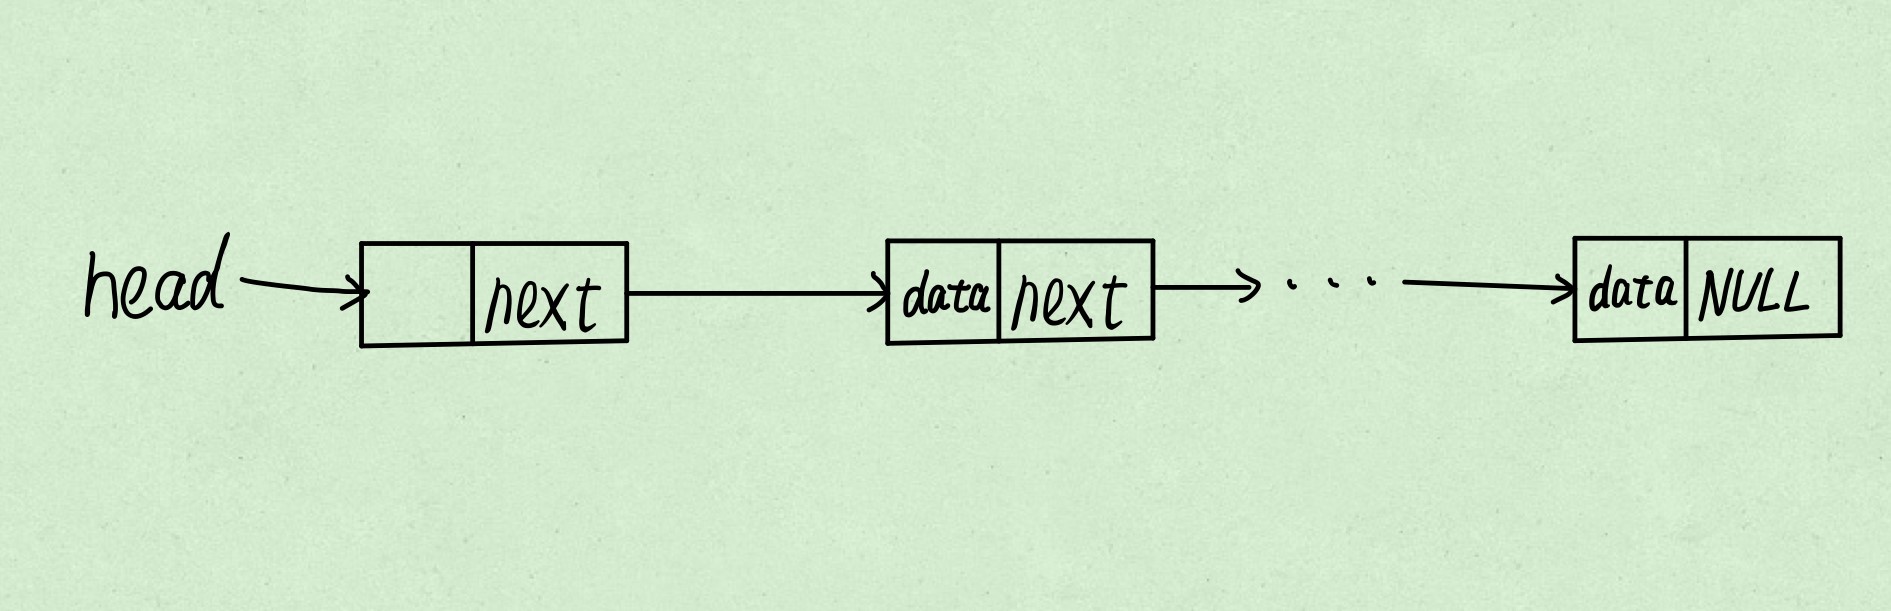 head next data next ... data NULL